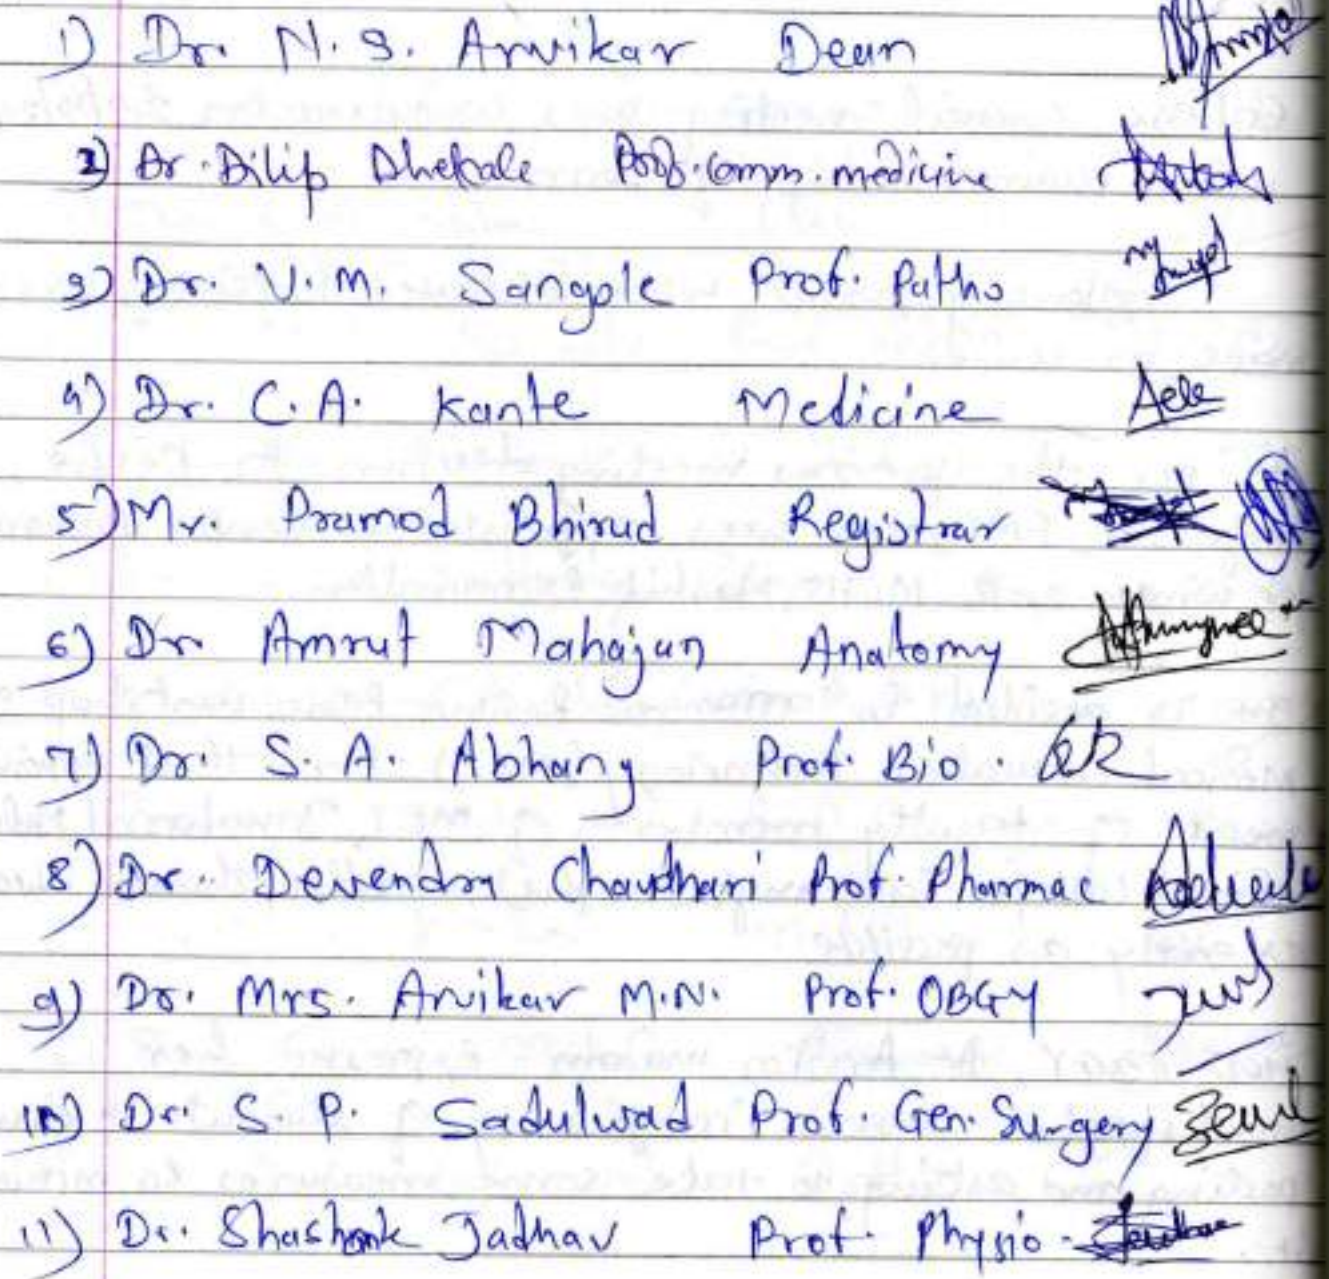 1) Dr. N. S. Arvikar Dean
2) Dr. Dilip Dhekale Prof. comm. medicine
3) Dr. V. M. Sangole Prof. Patho
4) Dr. C. A. Kante Medicine
5) Mr. Pramod Bhirud Registrar
6) Dr Amrut Mahajan Anatomy
7) Dr. S. A. Abhang Prof. Bio.
8) Dr. Devendra Chaudhari Prof. Pharmac
9) Dr. Mrs. Arvikar M.N. Prof. OBGY
10) Dr. S. P. Sadulwad Prof. Gen. Surgery
11) Dr. Shashank Jadhav Prof. Physio.